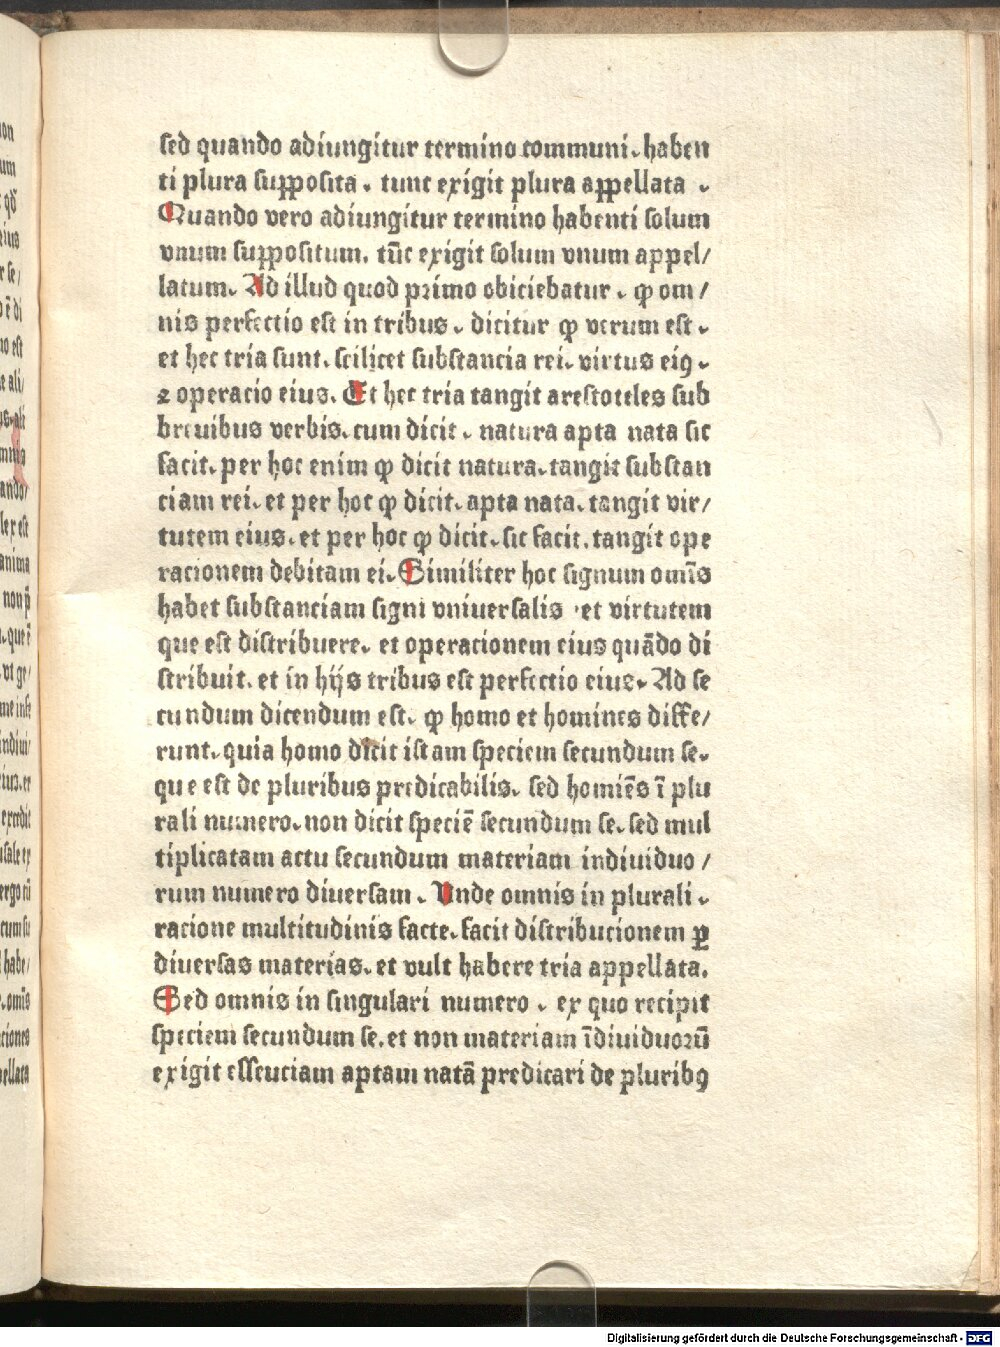 sed quando adiungitur termino communi. haben
ti plura supposita. tunc exigit plura appellata.
Quando vero adiungitur termino habenti solum
vnum suppositum. tūc exigit solum vnum appel/
latum. Ad illud quod primo obiciebatur. ꝙ om/
nis perfectio est in tribus. dicitur ꝙ verum est.
et hec tria sunt. scilicet substancia rei. virtus eiꝯ.
⁊ operacio eius. Et hec tria tangit arestoteles sub
breuibus verbis. cum dicit. natura apta nata sic
facit. per hoc enim ꝙ dicit natura. tangit substan
ciam rei. et per hoc ꝙ dicit. apta nata. tangit vir/
tutem eius. et per hoc ꝙ dicit. sic facit. tangit ope
racionem debitam ei. Similiter hoc signum omīs
habet substanciam signi vniuersalis. et virtutem
que est distribuere. et operacionem eius quādo di
stribuit. et in hijs tribus est perfectio eius. Ad se
cundum dicendum est. ꝙ homo et homines diffe/
runt. quia homo dicit istam speciem secundum se.
que est de pluribus predicabilis. sed homiēs ī plu
rali numero. non dicit speciē secundum se. sed mul
tiplicatam actu secundum materiam indiuiduo/
rum numero diuersam. Unde omnis in plurali.
racione multitudinis facte. facit distribucionem ꝑ
diuersas materias. et vult habere tria appellata.
Sed omnis in singulari numero. ex quo recipit
speciem secundum se. et non materiam īdiuiduoꝛū
exigit essenciam aptam natā predicari de pluribꝯ
Digitalisierung gefördert durch die Deutsche Forschungsgemeinschaft - DFG